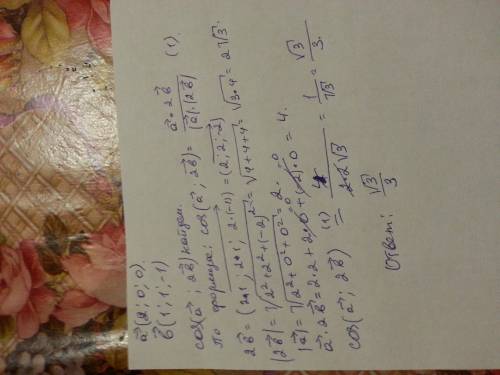 a⃗ (2; 0; 0)
b⃗ (1; 1; -1)
cos(a⃗ ; 2b⃗) найдем
по формуле: cos(a⃗ ; 2b⃗) = a⃗ · 2b⃗ / |a⃗|·|2b⃗| (1)
2b⃗ = (2·1; 2·1; 2·(-1)) = (2; 2; -2)
|2b⃗| = √2²+2²+(-2)² = √4+4+4 = √3·4 = 2√3.
|a⃗| = √2²+0+0² = 2.
a⃗ · 2b⃗ = 2·2 + 2·0 + (-2)·0 = 4.
cos(a⃗ ; 2b⃗) (1) = 4 / 2·2√3 = 1/√3 = √3/3.
Ответ: √3/3